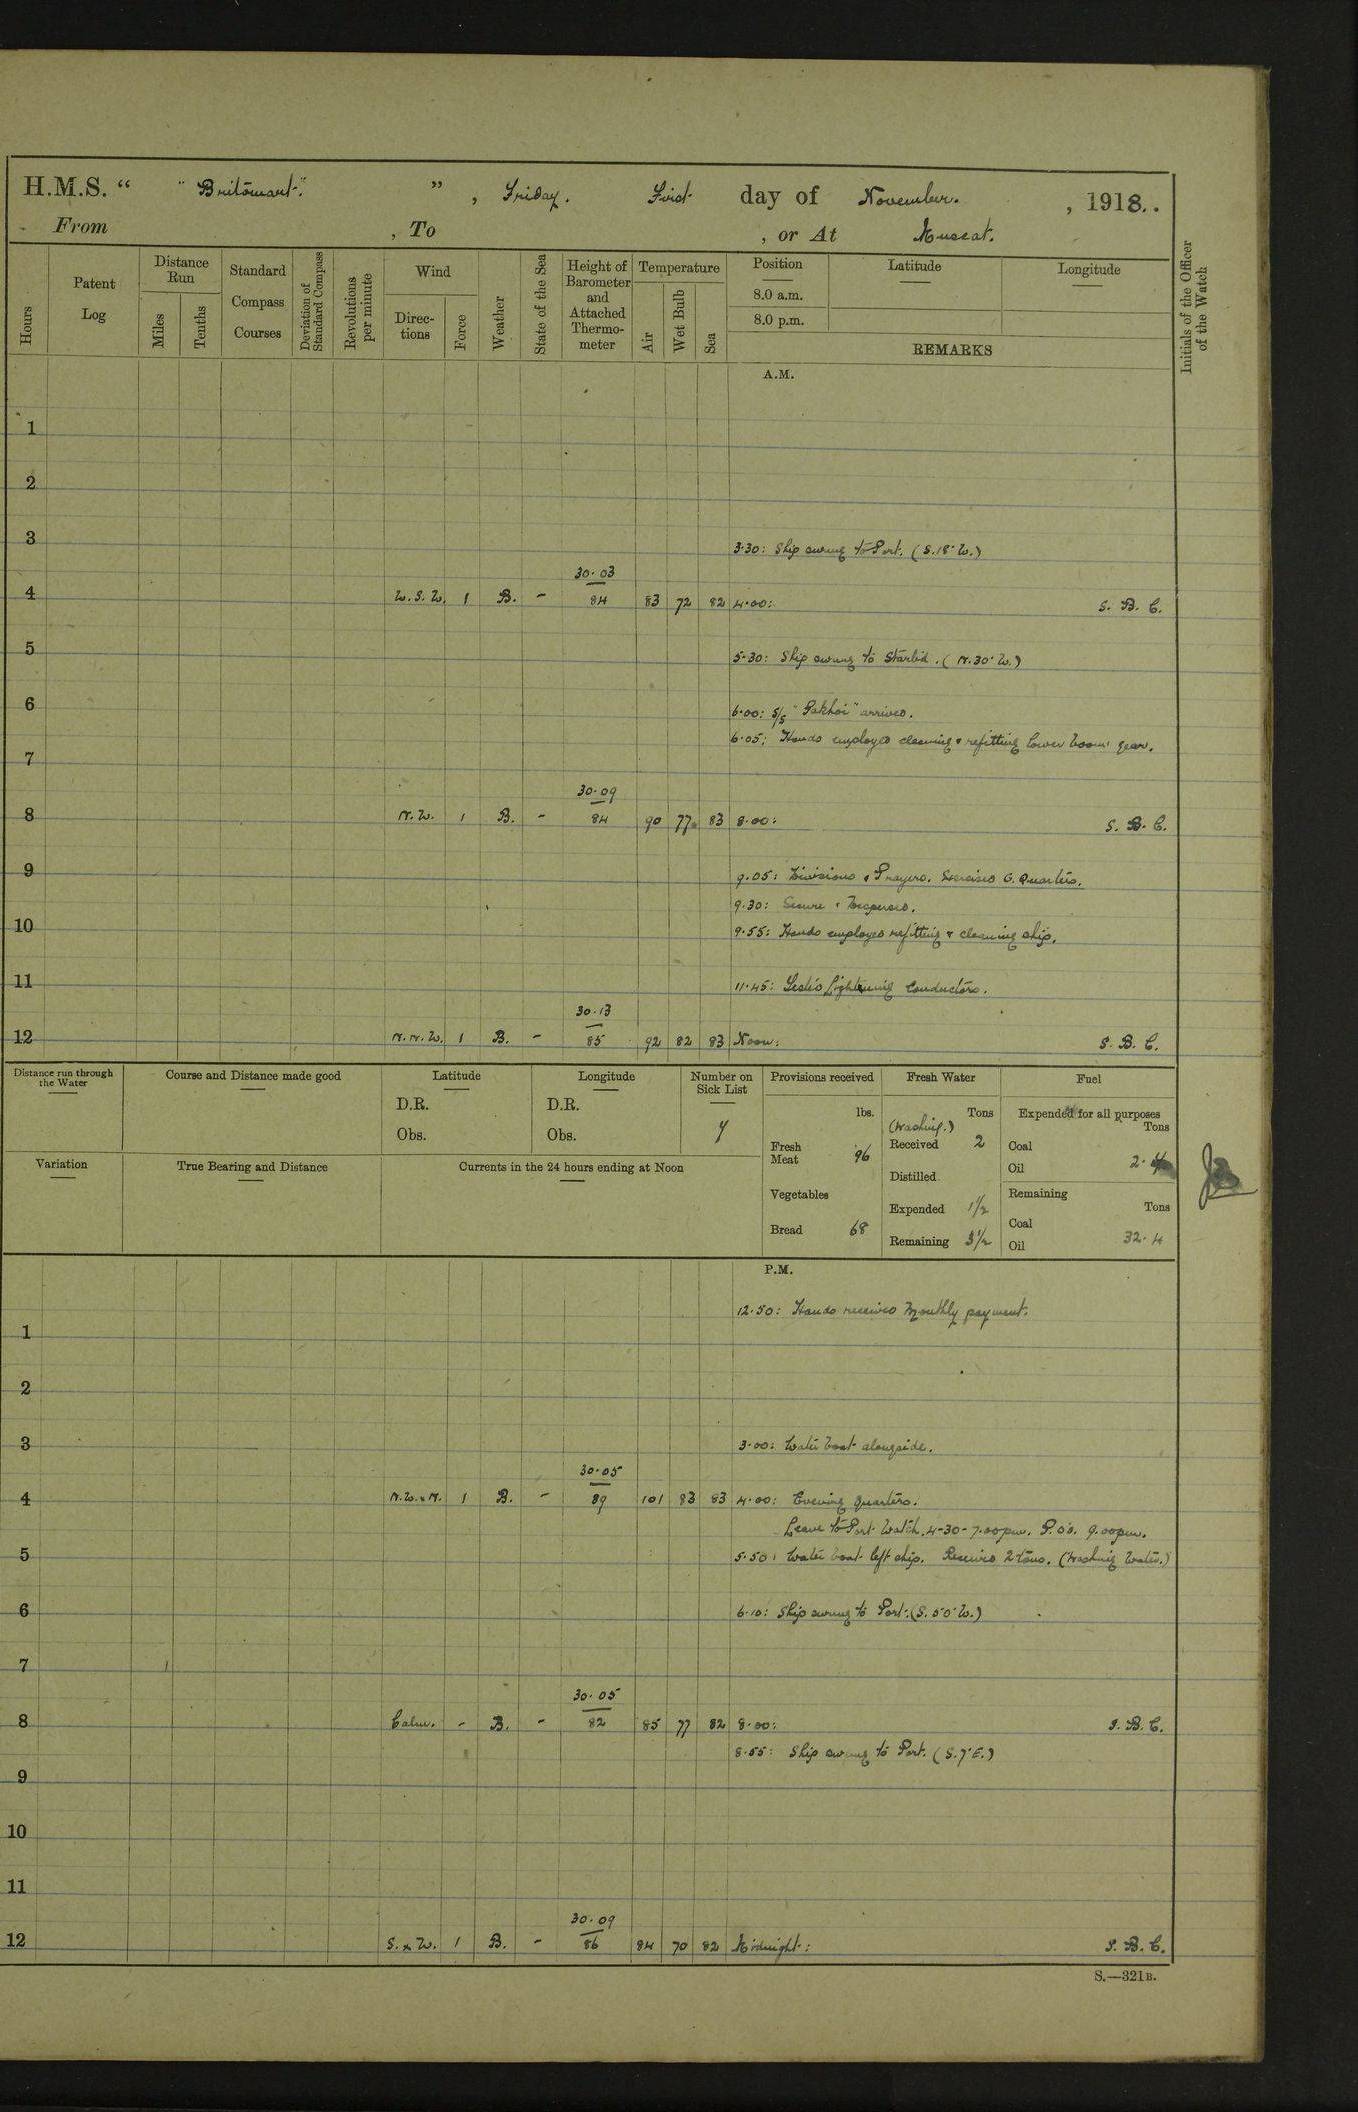 H.M.S. " "Britomart". ", Friday. First day of November. , 1918..
From , To , or At Muscat.
Hours
Patent Log
Distance Run
Miles
Tenths
Standard Compass Courses
Deviation of Standard Compass
Revolutions per minute
Wind
Directions
Force
Weather
State of the Sea
Height of Barometer and Attached Thermometer
Temperature
Air
Wet Bulb
Sea
Position
8.0 a.m.
8.0 p.m.
Latitude
Longitude
REMARKS
Initials of the Officer of the Watch
A.M.
1
2
3 3.30: Ship swung to Port. (S.18°W.)
30.03
4 W.S.W. 1 B. - 84 83 72 82 4.00: S.B.C.
5 5.30: Ship swung to Starb'd. (N.30°W.)
6 6.00: S/S "Pakhoi" arrived.
6.05: Hands employed cleaning & refitting lower boom gear.
7
30.09
8 N.W. 1 B. - 84 90 77 83 8.00: S.B.C.
9 9.05: Divisions & Prayers. Exercised G. Quarters.
9.30: Secure & Dispersed.
10 9.55: Hands employed refitting & cleaning ship.
11 11.45: Tested Lightening Conductors.
30.13
12 N.N.W. 1 B. - 85 92 82 83 Noon: S.B.C.
Distance run through the Water
Course and Distance made good
Latitude
D.R.
Obs.
Longitude
D.R.
Obs.
Number on Sick List
7
Provisions received
lbs.
Fresh Meat 96
Vegetables
Bread 68
Fresh Water
Tons
(Washing.)
Received 2
Distilled
Expended 1½
Remaining 3½
Fuel
Expended for all purposes
Tons
Coal
Oil 2.4
Remaining
Tons
Coal
Oil 32.4
Variation
True Bearing and Distance
Currents in the 24 hours ending at Noon
P.M.
12.50: Hands received Monthly payment.
1
2
3 3.00: Water boat alongside.
30.05
4 N.W.xN. 1 B. - 89 101 83 83 4.00: Evening Quarters.
Leave to Port Watch. 4-30-7.00pm. P.O's. 9.00pm.
5 5.50: Water boat left ship. Received 2 tons. (Washing Water.)
6 6.10: Ship swung to Port. (S.50°W.)
7
30.05
8 Calm. - B. - 82 85 77 82 8.00: S.B.C.
8.55: Ship swung to Port. (S.7°E.)
9
10
11
30.09
12 S.xW. 1 B. - 86 84 70 82 Midnight: S.B.C.
S.—321B.